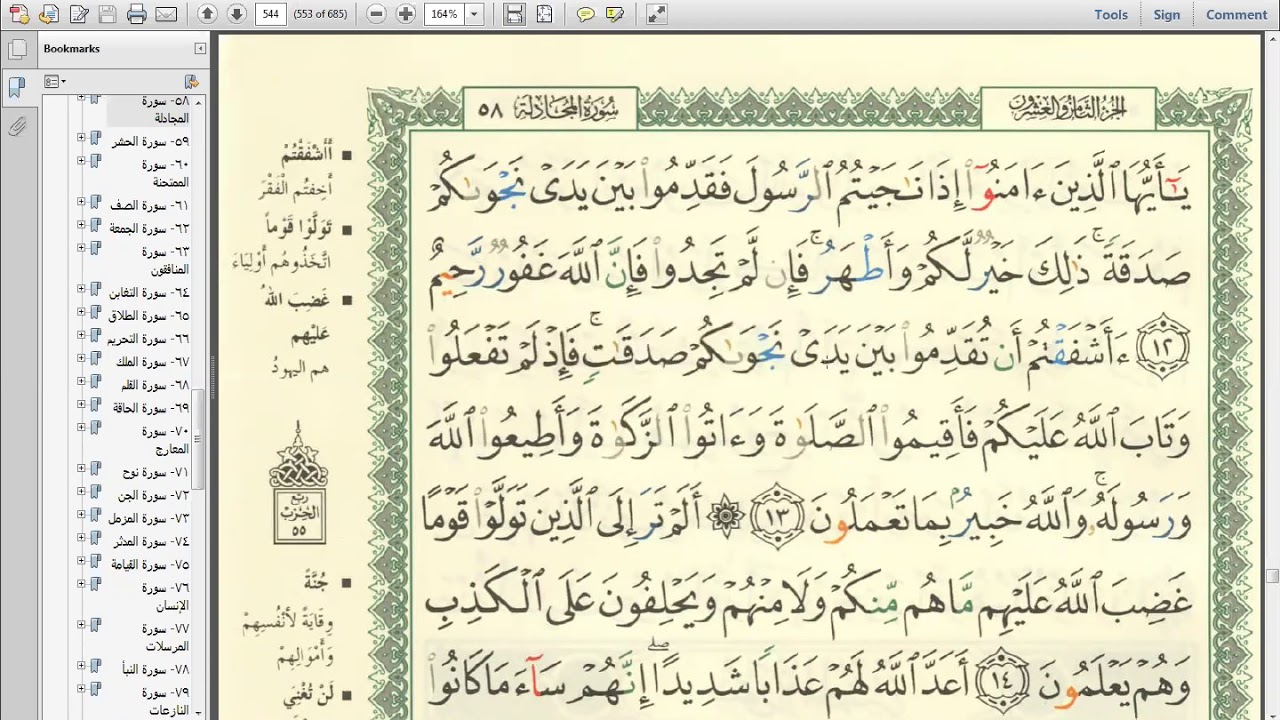 544
(553 of 685)
164%
Tools
Sign
Comment
Bookmarks
٥٨- سورة
المجادلة
٥٩- سورة الحشر
٦٠- سورة
الممتحنة
٦١- سورة الصف
٦٢- سورة الجمعة
٦٣- سورة
المنافقون
٦٤- سورة التغابن
٦٥- سورة الطلاق
٦٦- سورة التحريم
٦٧- سورة الملك
٦٨- سورة القلم
٦٩- سورة الحاقة
٧٠- سورة
المعارج
٧١- سورة نوح
٧٢- سورة الجن
٧٣- سورة المزمل
٧٤- سورة المدثر
٧٥- سورة القيامة
٧٦- سورة
الإنسان
٧٧- سورة
المرسلات
٧٨- سورة النبأ
٧٩- سورة
النازعات
الجزء الثامن والعشرون
سورة المجادلة ٥٨
يَٰٓأَيُّهَا ٱلَّذِينَ ءَامَنُوٓا۟ إِذَا نَٰجَيْتُمُ ٱلرَّسُولَ فَقَدِّمُوا۟ بَيْنَ يَدَىْ نَجْوَىٰكُمْ
صَدَقَةً ۚ ذَٰلِكَ خَيْرٌ لَّكُمْ وَأَطْهَرُ ۚ فَإِن لَّمْ تَجِدُوا۟ فَإِنَّ ٱللَّهَ غَفُورٌ رَّحِيمٌ
١٢ ءَأَشْفَقْتُمْ أَن تُقَدِّمُوا۟ بَيْنَ يَدَىْ نَجْوَىٰكُمْ صَدَقَٰتٍ ۚ فَإِذْ لَمْ تَفْعَلُوا۟
وَتَابَ ٱللَّهُ عَلَيْكُمْ فَأَقِيمُوا۟ ٱلصَّلَوٰةَ وَءَاتُوا۟ ٱلزَّكَوٰةَ وَأَطِيعُوا۟ ٱللَّهَ
وَرَسُولَهُۥ ۚ وَٱللَّهُ خَبِيرٌۢ بِمَا تَعْمَلُونَ ١٣ ۞ أَلَمْ تَرَ إِلَى ٱلَّذِينَ تَوَلَّوْا۟ قَوْمًا
غَضِبَ ٱللَّهُ عَلَيْهِم مَّا هُم مِّنكُمْ وَلَا مِنْهُمْ وَيَحْلِفُونَ عَلَى ٱلْكَذِبِ
وَهُمْ يَعْلَمُونَ ١٤ أَعَدَّ ٱللَّهُ لَهُمْ عَذَابًا شَدِيدًا ۖ إِنَّهُمْ سَآءَ مَا كَانُوا۟
أَأَشْفَقْتُمْ
أَخِفْتُم الْفَقْرَ
تَوَلَّوْا قَوْماً
اتَّخَذُوهُم أَوْلِيَاءَ
غَضِبَ اللهُ
عَلَيْهِم
هم اليهودُ
ربع
الحزب
٥٥
جُنَّةً
وِقَايَةً لأَنْفُسِهِمْ
وَأَمْوَالِهِمْ
لَنْ تُغْنِيَ